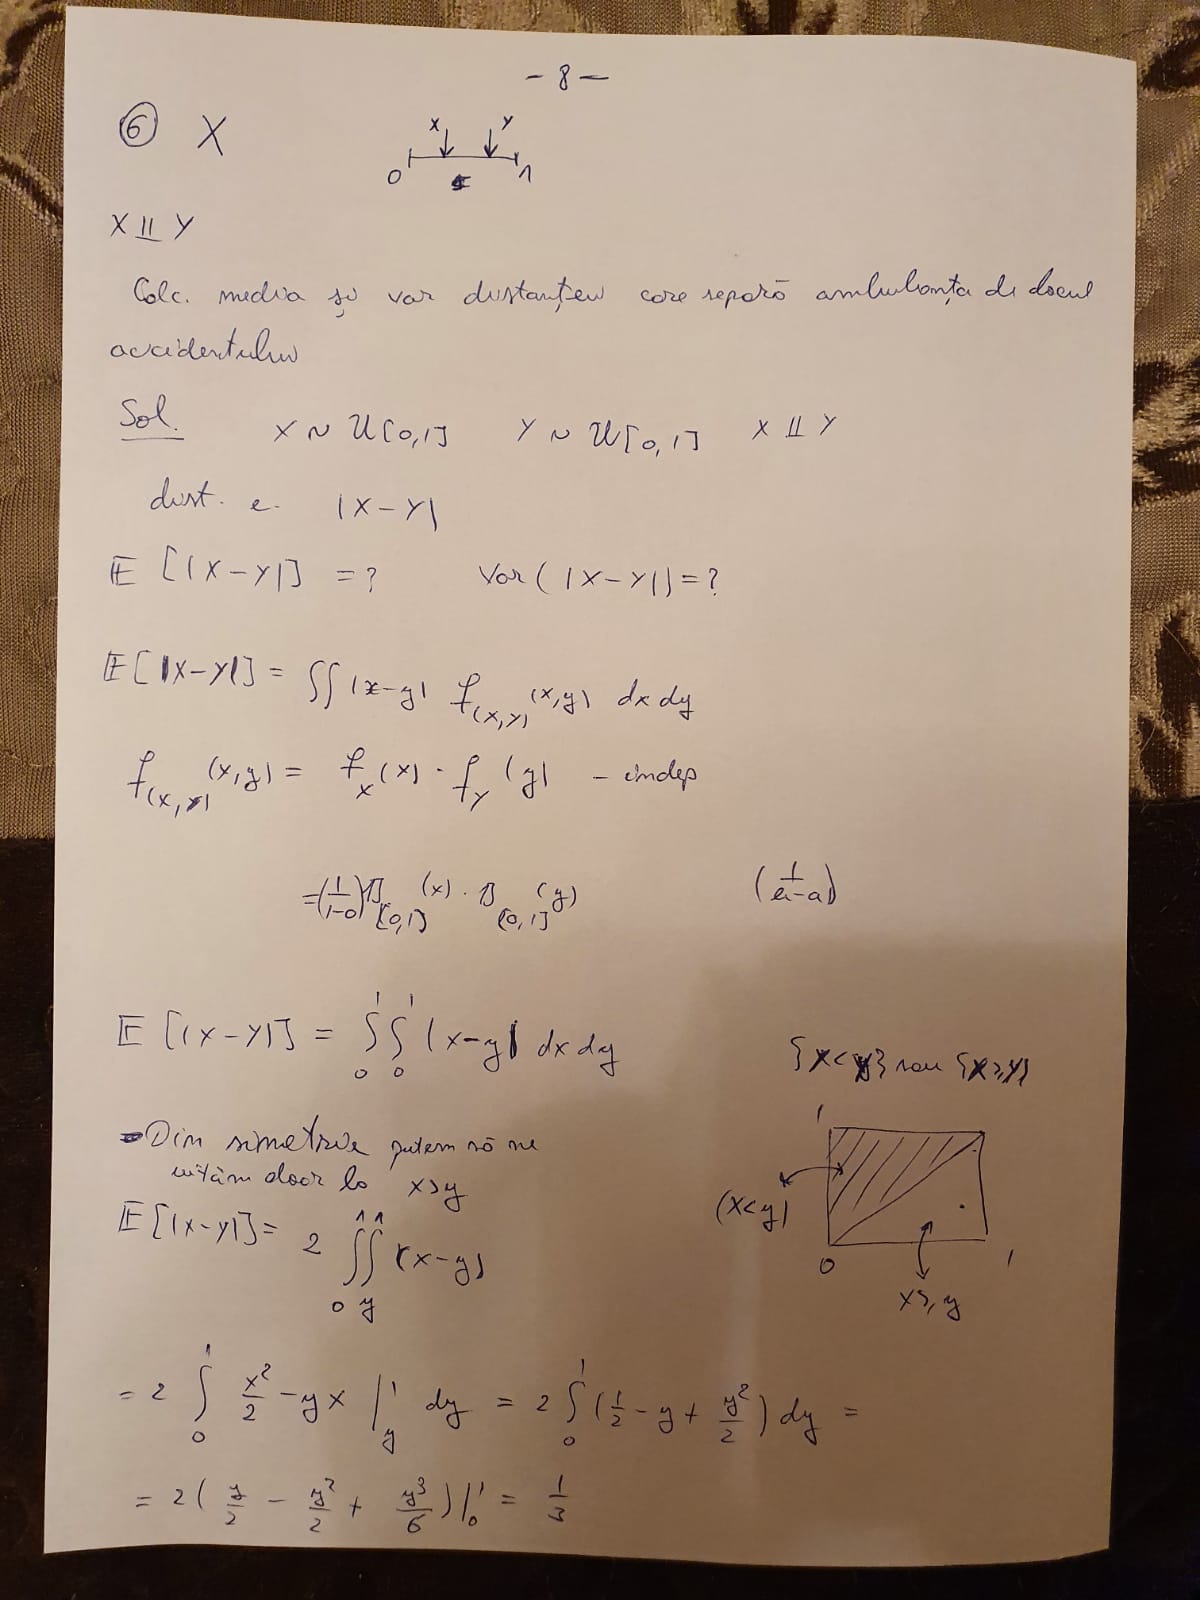 - 8 -
⑥ X
x y
0 1
X ⫫ Y
Calc. media și var distanței care separă ambulanța de locul
accidentului
Sol. X ~ U[0,1] Y ~ U[0,1] X ⫫ Y
dist. e. |X-Y|
𝔼[|X-Y|] = ? Var(|X-Y|) = ?
𝔼[|X-Y|] = ∬ |x-y| f_(X,Y) (x,y) dx dy
f_(X,Y) (x,y) = f_X (x) · f_Y (y) - indep
= (1/(1-0)) 𝟙_[0,1] (x) · 𝟙_[0,1] (y)
𝔼[|X-Y|] = ∫_0^1 ∫_0^1 |x-y| dx dy
{X<Y} sau {X≥Y}
- Din simetrie putem să ne
uităm doar la x>y
1
(x<y)
0 1
x≥y
𝔼[|X-Y|] = 2 ∫_0^1 ∫_y^1 (x-y)
= 2 ∫_0^1 x²/2 - yx |_y^1 dy = 2 ∫_0^1 (1/2 - y + y²/2) dy =
= 2 (y/2 - y²/2 + y³/6) |_0^1 = 1/3